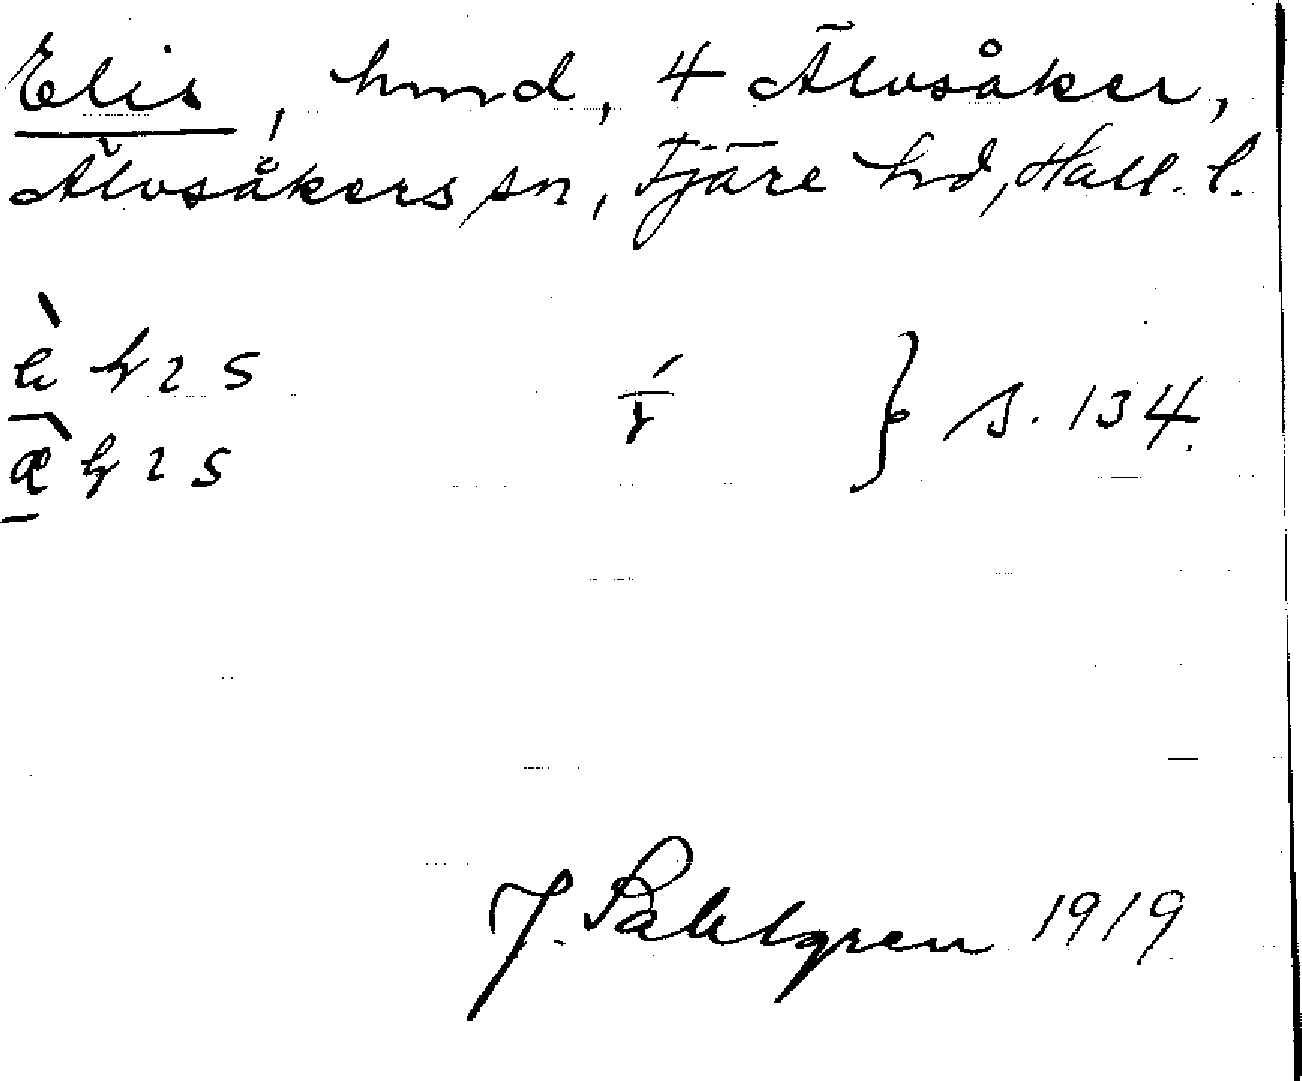 Elis, hmd, 4 Älvsåker,
Älvsåkers sn, Fjäre hd, Hall. l.
s. 134.
J. Sahlgren 1919